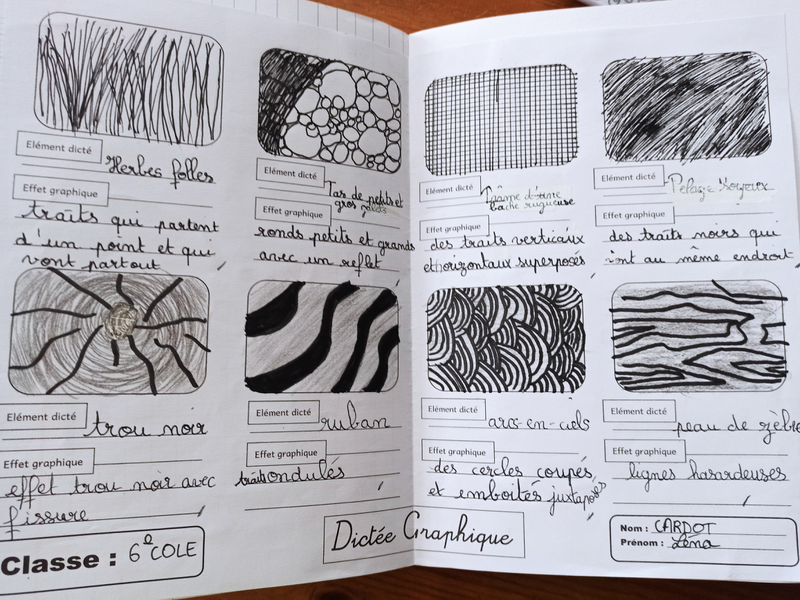 Elément dicté
Herbes folles
Effet graphique
traits qui partent
d'un point et qui
vont partout
Elément dicté
Tas de petits et
gros galets
Effet graphique
ronds petits et grands
avec un reflet
Elément dicté
Trâme d'une
bache rugueuse
Effet graphique
des traits verticaux
et horizontaux superposés
Elément dicté
Pelage soyeux
Effet graphique
des traits noirs qui
vont au même endroit
Elément dicté
trou noir
Effet graphique
effet trou noir avec
fissure
Elément dicté
ruban
Effet graphique
traits ondulés
Elément dicté
arcs-en-ciels
Effet graphique
des cercles coupés
et emboités juxtaposés
Elément dicté
peau de zèbre
Effet graphique
lignes hasardeuses
Classe : 6° COLE
Dictée Graphique
Nom : CARDOT
Prénom : Léna